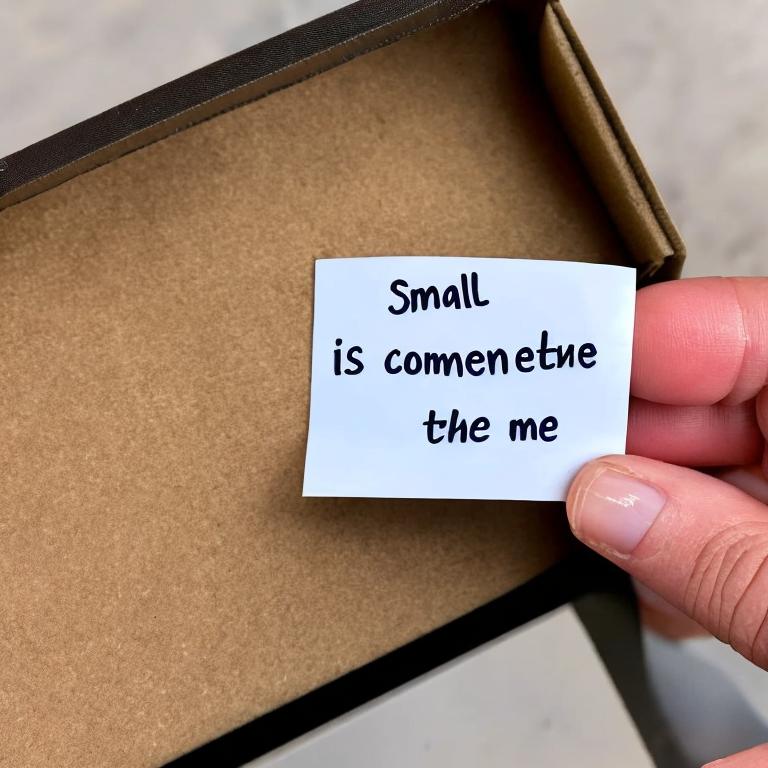 Small
is comenetue
the me